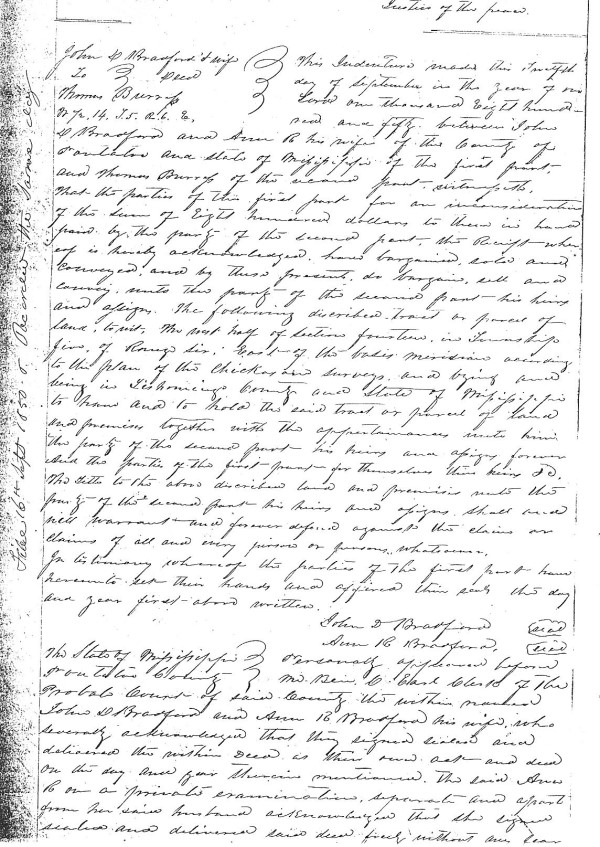 Justice of the peace.
John D Bradford & wife
To Deed
Thomas Burress
W ½ 14. T.5. R.6. E.
This Indenture made this Twelfth
day of September in the year of our
Lord one thousand Eight hund-
red and fifty between John
D Bradford and Ann R his wife of the County of
Pontotoc and state of Mississippi of the first part,
and Thomas Burress of the second part, witnesseth,
That the parties of the first part for an inconsideration
of the sum of Eight hundred dollars to them in hand
paid by the party of the second part, the Receipt wher-
eof is hereby acknowledged, have bargained, sold and
conveyed, and by these present, do bargain, sell and
convey, unto the party of the second part his heirs
and assigns. The following discribed tract or parcel of
land, to wit, The west half of section fourteen, in Township
five, of Range six, East of the basis meridian according
to the plan of the Chickasaw surveys, and lying and
being in Tishomingo County and State of Mississippi
to have and to hold the said tract or parcel of land
and premises together with the appertainances unto him
the party of the second part his heirs and assigns forever
And the parties of the first part for themselves their heirs &c.
The title to the above discribed land and premises unto the
party of the second part his heirs and assigns shall and
will warrant and forever defend against the claim or
claims of all and every person or persons, whatsoever.
In testimony whereof the parties of the first part have
hereunto set their hands and affixed their seals the day
and year first above written.
John D Bradford seal
Ann R Bradford, seal
The State of Mississippi
Pontotoc County
Personally appeared before
me Ben. C. Earl Clerk of the
Probate Court of said County the within named
John D Bradford and Ann R Bradford his wife, who
severally acknowledged that they signed sealed and
delivered the within Deed as their own act and deed
on the day and year therein mentioned. The said Ann
R on a private examination, separate and apart
from her said husband acknowledged that she signed
sealed and delivered said deed freely without any fear
Filed 16th Sept 1850 & Recorded the same day